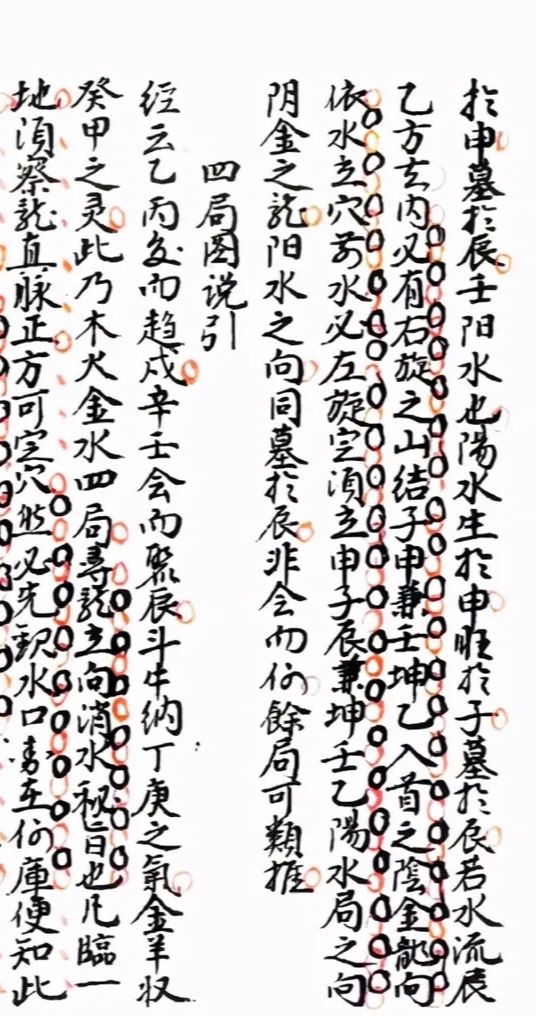 於申墓於辰壬阳水也陽水生於申旺於子墓於辰若水流辰
乙方去内必有右旋之山结子申兼壬坤乙入首之陰金龍向
依水立穴前水必左旋定須立申子辰兼坤壬乙陽水局之向
阴金之龙阳水之向同墓於辰非会而何餘局可類推
四局图说引
经云乙丙交而趋戍辛壬会而聚辰斗牛纳丁庚之氣金羊收
癸甲之灵此乃木火金水四局尋龙立向消水秘旨也凡臨一
地須察龙真脉正方可定穴然必先觀水口出在何庫便知此